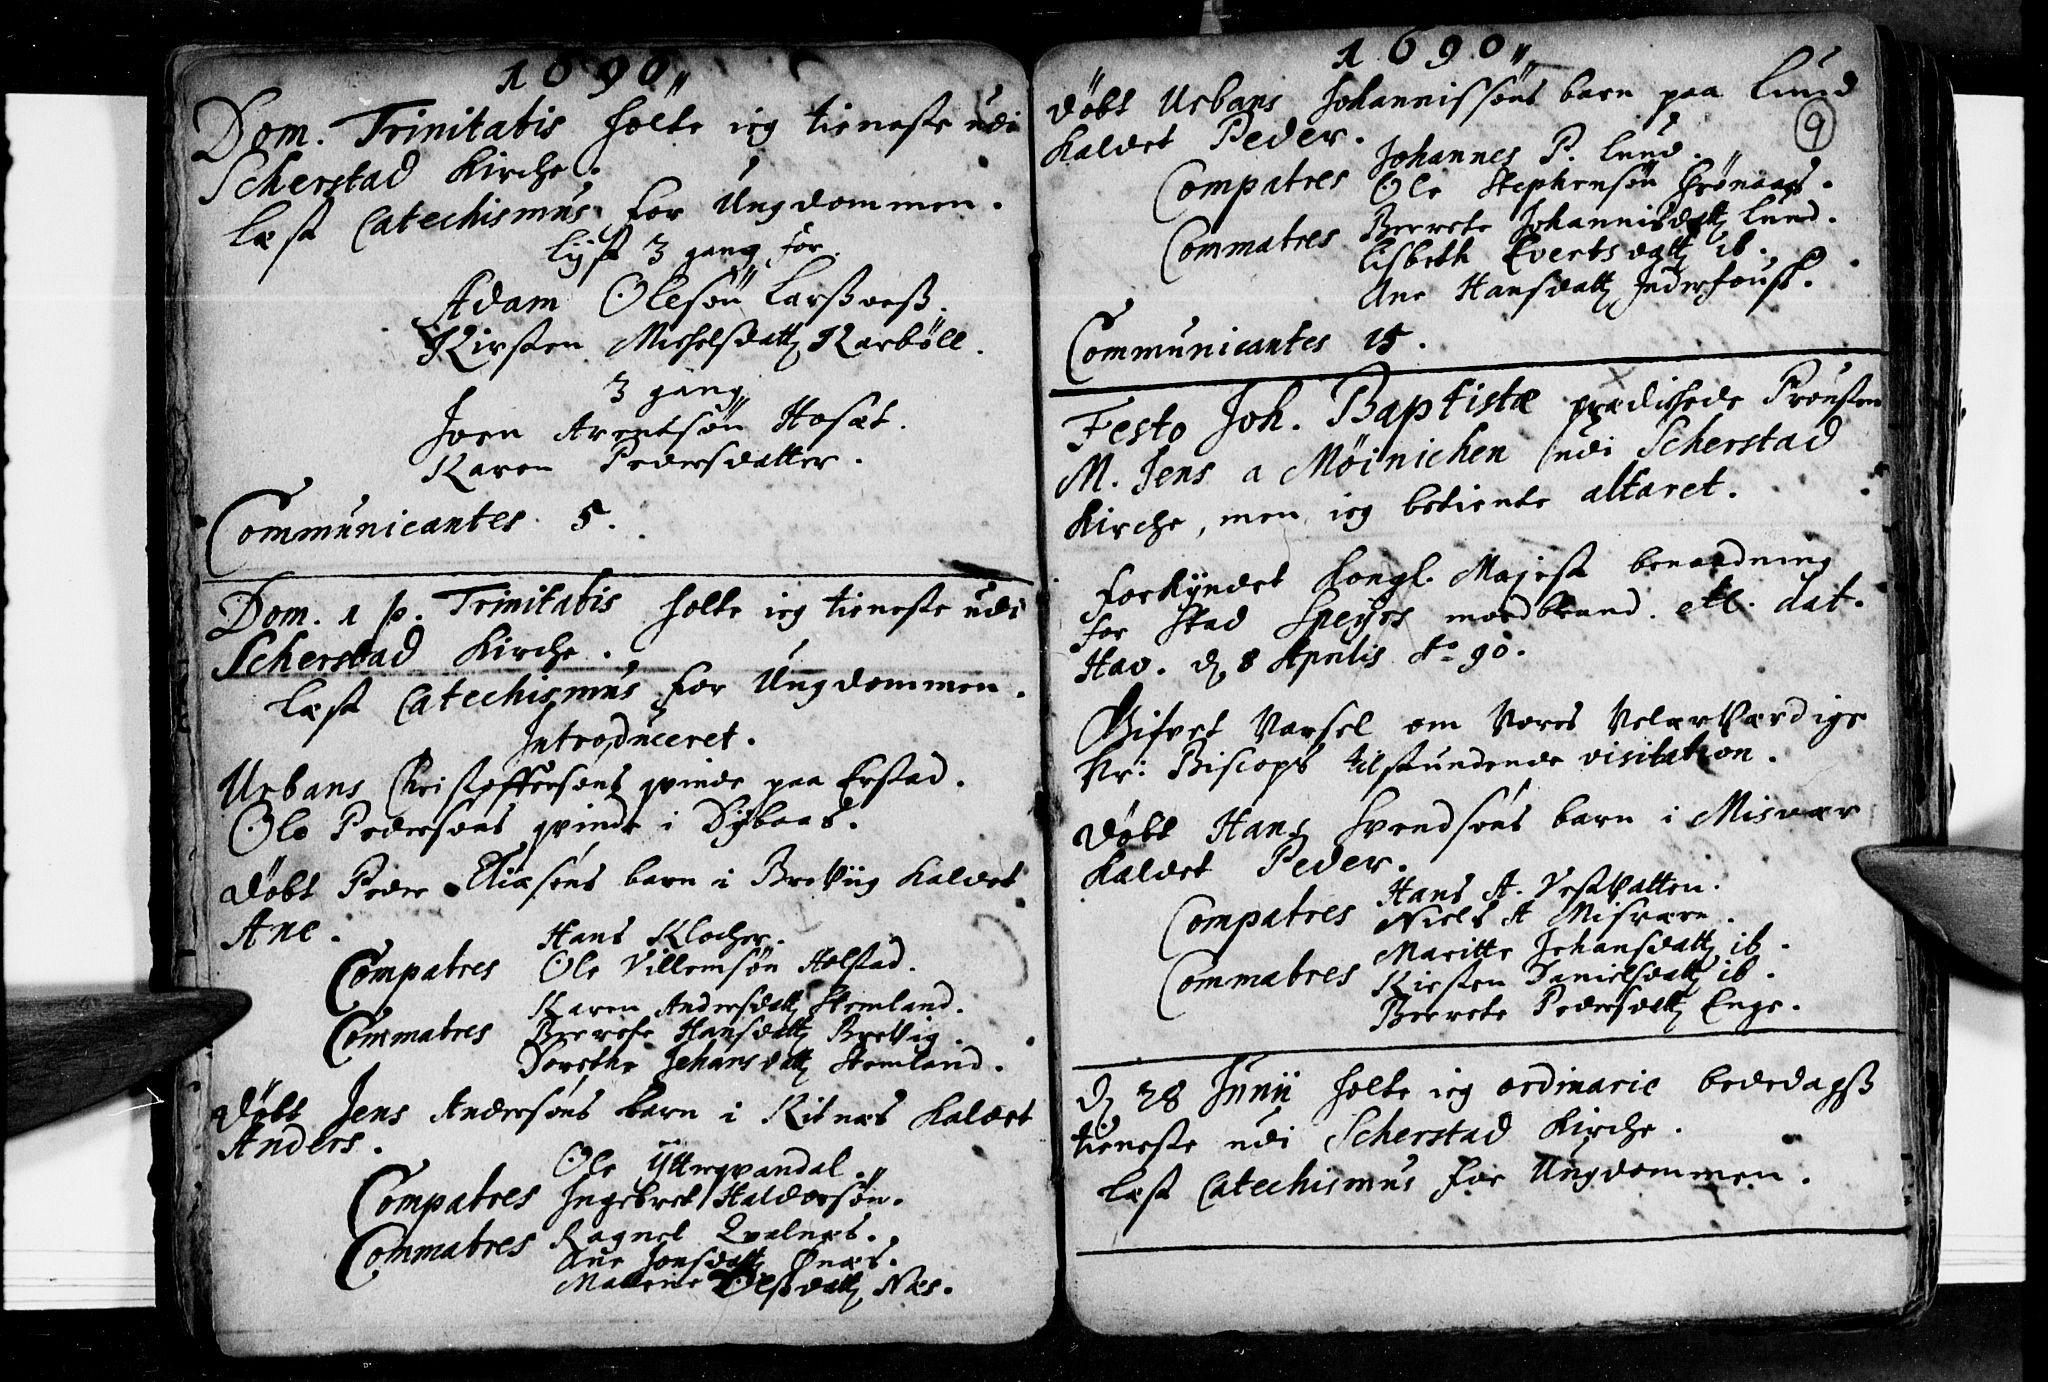 1690„
Dom. Trinitatis holte ieg tieneste udi
Scherstad Kirche.
læst Catechismus for Ungdommen.
lyst 3 gang for
Adam Olesøn
Kirsten Michelsdatt Karbøll.
3 gang
Joen Arentsøn Hosæt.
Karen Pedersdatter.
Communicantes 5.
Dom. 1 p. Trinitatis holte ieg tieneste udi
Scherstad Kirche.
læst Catechismus for Ungdommen.
Introduceret.
Urbans Christoffersøns qvinde paa Erstad.
Ole Pedersøns qvinde i
Døbt Peder Eliæsøns barn i Brevig kaldet
Ane.
Compatres Hans Klocher.
Ole Villemsøn Alstad.
Karen Andersdatt Stemland.
Commatres Beerete Hansdatt Brevig.
Dorethe Johansdatt Stemland.
Døbt Jens Andersøns barn i Kitnæs kaldet
Anders.
Ole Ytterqvandal.
Compatres Ingebret Haldorsøn.
Commatres Ragnel Qvalnæs.
Ane Jonsdatt Ønæs.
Malene Olsdatt Næs.
1690„
9
Døbt Urbans Johannissøns barn paa Lund
kaldet Peder.
Johannes P. Lund.
Compatres Ole Stephensøn Grønaas.
Commatres Beerete Johannisdatt Lund.
Lisbeth Evertsdatt ib.
Ane Hansdatt
Communicantes 15.
Festo Joh. Baptistæ prædichede Prousten
M. Jens a Møinichen udi Scherstad
Kirche, men ieg betiente altaret.
Forkyndet Kongl. Majest benaadning
for Stad Speyers mordbrand. etc. dat.
Hav. d 8 Aprilis Ao 90.
Gifvet Varsel om Vores Velærværdige
Hr: Biscops tilstundende visitation.
Døbt Hans Svendsøns barn i Misvær
kaldet Peder.
Hans A. Vestvatten.
Compatres Niels A Misvære.
Maritte Johansdatt ib.
Commatres Kirsten Danielsdatt ib.
Beerete Pedersdatt Enge.
d 28 Junii holte ieg ordinarie bededagsß
tieneste udi Scherstad Kirche.
læst Catechismus for Ungdommen.